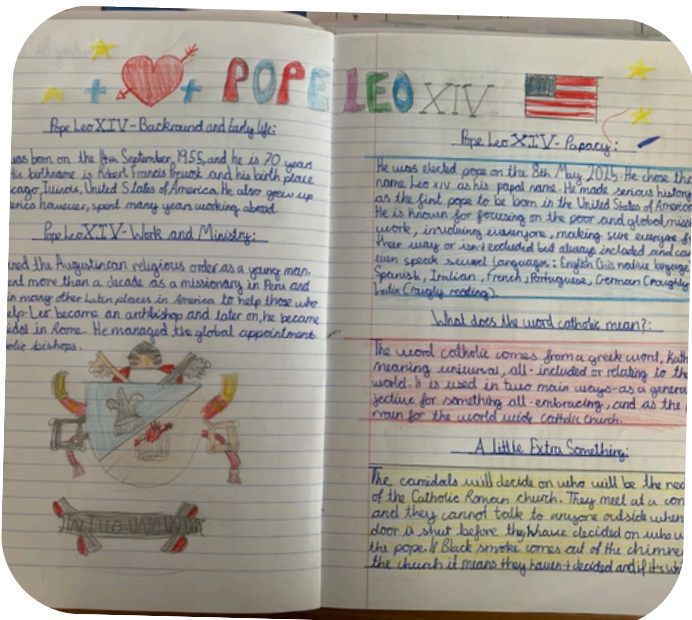 POPE LEO XIV
Pope Leo XIV - Backround and Early life:
was born on the 14th September, 1955, and he is 70 years
His birthname is Robert Francis Prevost and his birth place
cago, Illinois, United States of America. He also grew up
erica however, spent many years working abroad.
Pope Leo XIV - Work and Ministry:
ned the Augustinian religious order as a young man.
ent more than a decade as a missionary in Peru and
in many other Latin places in America to help those who
elp. Leo became an archbishop and later on, he became
in Rome. He managed the global appointment
olic bishops.
IN UNO
Pope Leo XIV - Papacy:
He was elected pope on the 8th May 2025. He chose the
name Leo XIV as his papal name. He made serious history
as the first pope to be born in the United States of America
He is known for focusing on the poor and global miss
work, involving everyone, making sure everyone f
their way or isn't excluded but always included and can
even speak several languages: English (his native language
Spanish, Italian, French, Portuguese, German (roughly
Latin (roughly reading).
What does the word catholic mean?:
The word catholic comes from a greek word, Kath
meaning universal, all-included or relating to the
world. It is used in two main ways - as a genera
jective for something all-embracing, and as the
noun for the world wide catholic church.
A little Extra Something:
The will decide on who will be the nex
of the Catholic Roman church. They meet at a con
and they cannot talk to anyone outside when
door is shut before they have decided on who w
the pope. If Black smoke comes out of the chimne
the church it means they haven't decided and if it's wh